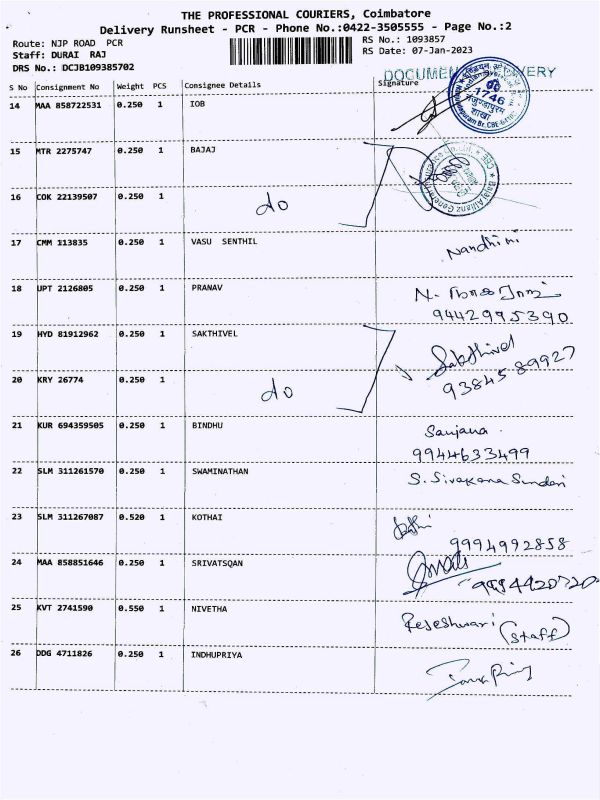 THE PROFESSIONAL COURIERS, Coimbatore
Delivery Runsheet - PCR - Phone No.:0422-3505555 - Page No.:2
Route: NJP ROAD PCR
RS No.: 1093857
Staff: DURAI RAJ
RS Date: 07-Jan-2023
DRS No.: DCJB109385702
DOCUMENT DELIVERY
S No Consignment No Weight PCS Consignee Details Signature
14 MAA 858722531 0.250 1 IOB
1746
शाखा
15 MTR 2275747 0.250 1 BAJAJ
Bajaj Allianz General Insurance Co. Ltd. CBE
16 COK 22139507 0.250 1 do
17 CMM 113835 0.250 1 VASU SENTHIL Nandhini
18 UPT 2126805 0.250 1 PRANAV N.
9442995390
19 HYD 81912962 0.250 1 SAKTHIVEL Sakthivel
9384589927
20 KRY 26774 0.250 1 do
21 KUR 694359505 0.250 1 BINDHU Sanjana
9944633499
22 SLM 311261570 0.250 1 SWAMINATHAN S. Sivakana Sundari
23 SLM 311267087 0.520 1 KOTHAI
9994992858
24 MAA 858851646 0.250 1 SRIVATSQAN
25 KVT 2741590 0.550 1 NIVETHA Reseshwari (Staff)
26 DDG 4711826 0.250 1 INDHUPRIYA